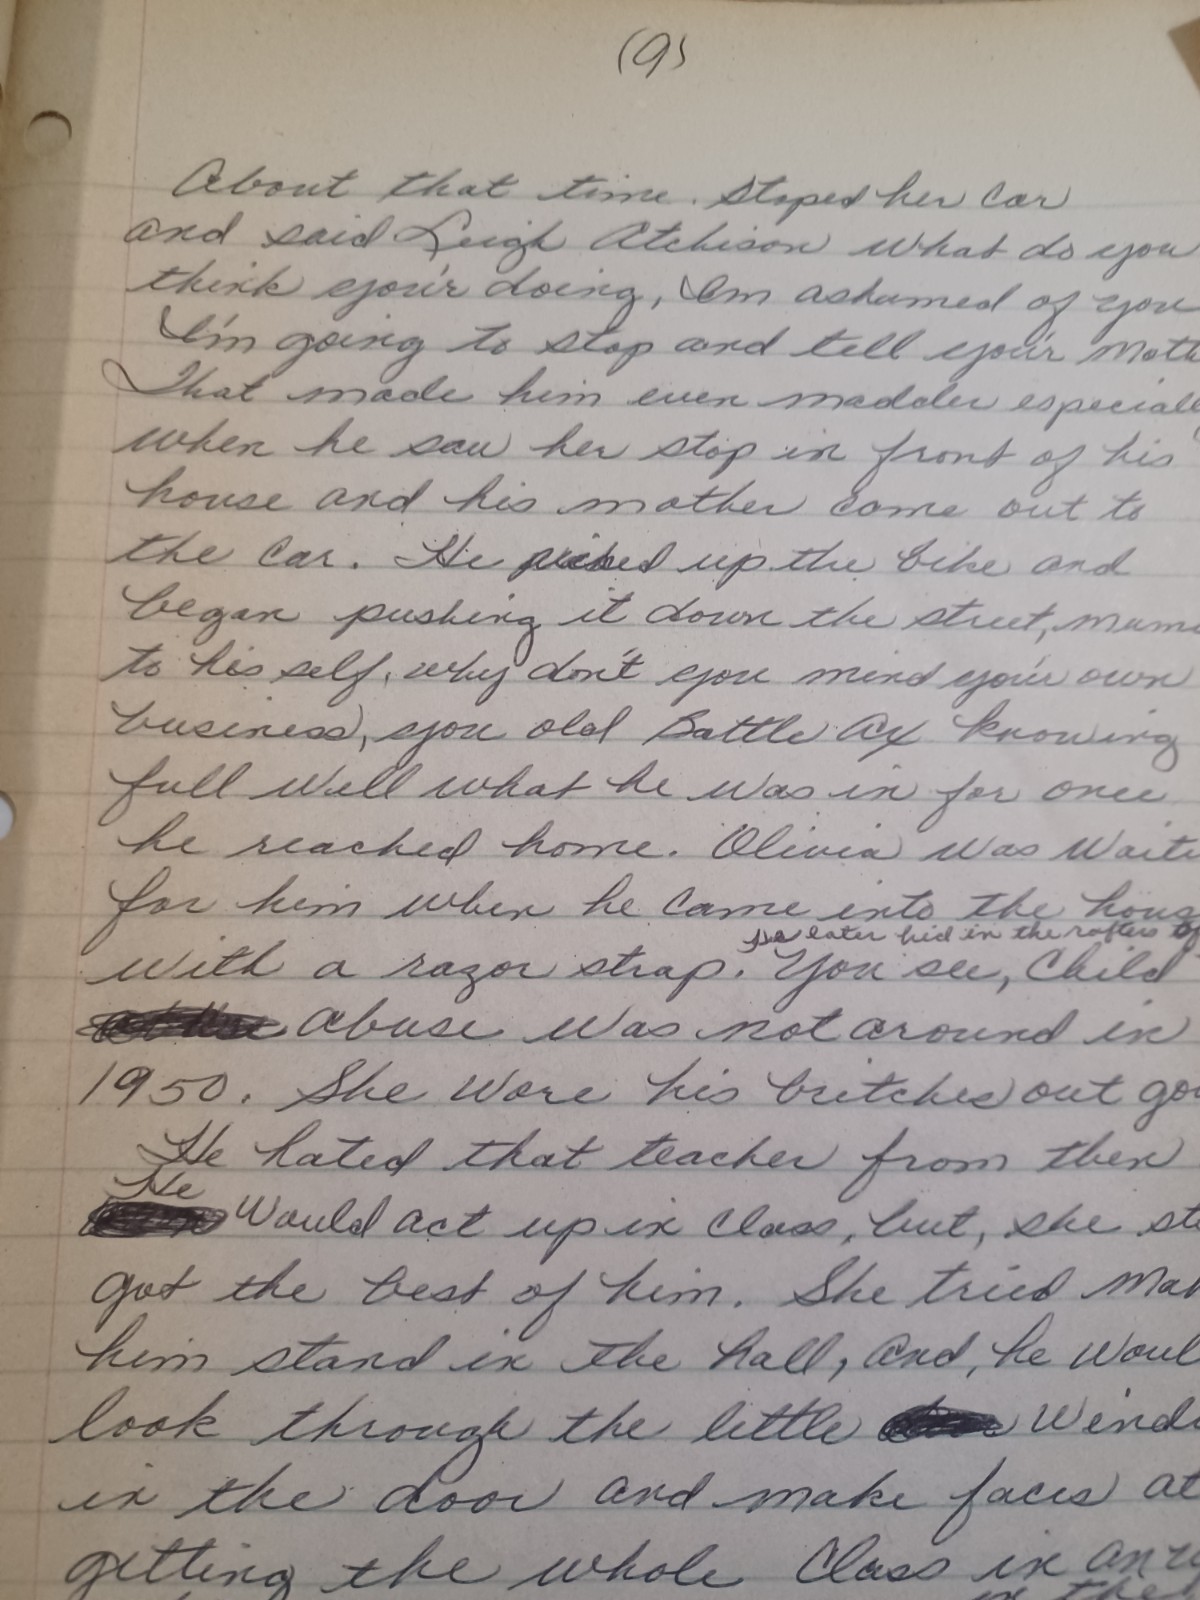 (9)
About that time. Stoped her car
and said Leigh Atchison what do you
think you'r doing, I'm ashamed of you
I'm going to stop and tell your Moth
That made him even madder especiall
when he saw her stop in front of his
house and his mother come out to
the car. He picked up the bike and
began pushing it down the street, mum
to his self, why don't you mind your own
business, you old Battle Ax knowing
full well what he was in for once
he reached home. Olivia was Waiti
for him when he came into the hous
he later hid in the rafters
with a razor strap. You see, Child
abuse was not around in
1950. She wore his britches out goo
He hated that teacher from then
He
Would act up in class, but, she st
got the best of him. She tried Mak
him stand in the hall, and, he Woul
look through the little Windo
in the door and make faces at
getting the whole Class in an
in the